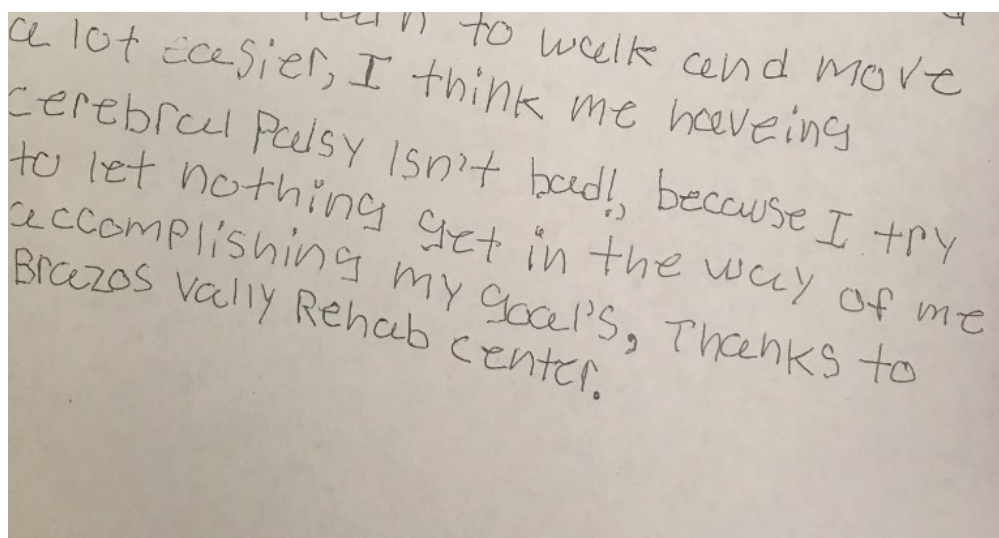 to walk and move
a lot easier, I think me haveing
cerebral Palsy Isn't bad!, because I try
to let nothing get in the way of me
accomplishing my goal's, Thanks to
Brazos Vally Rehab center.